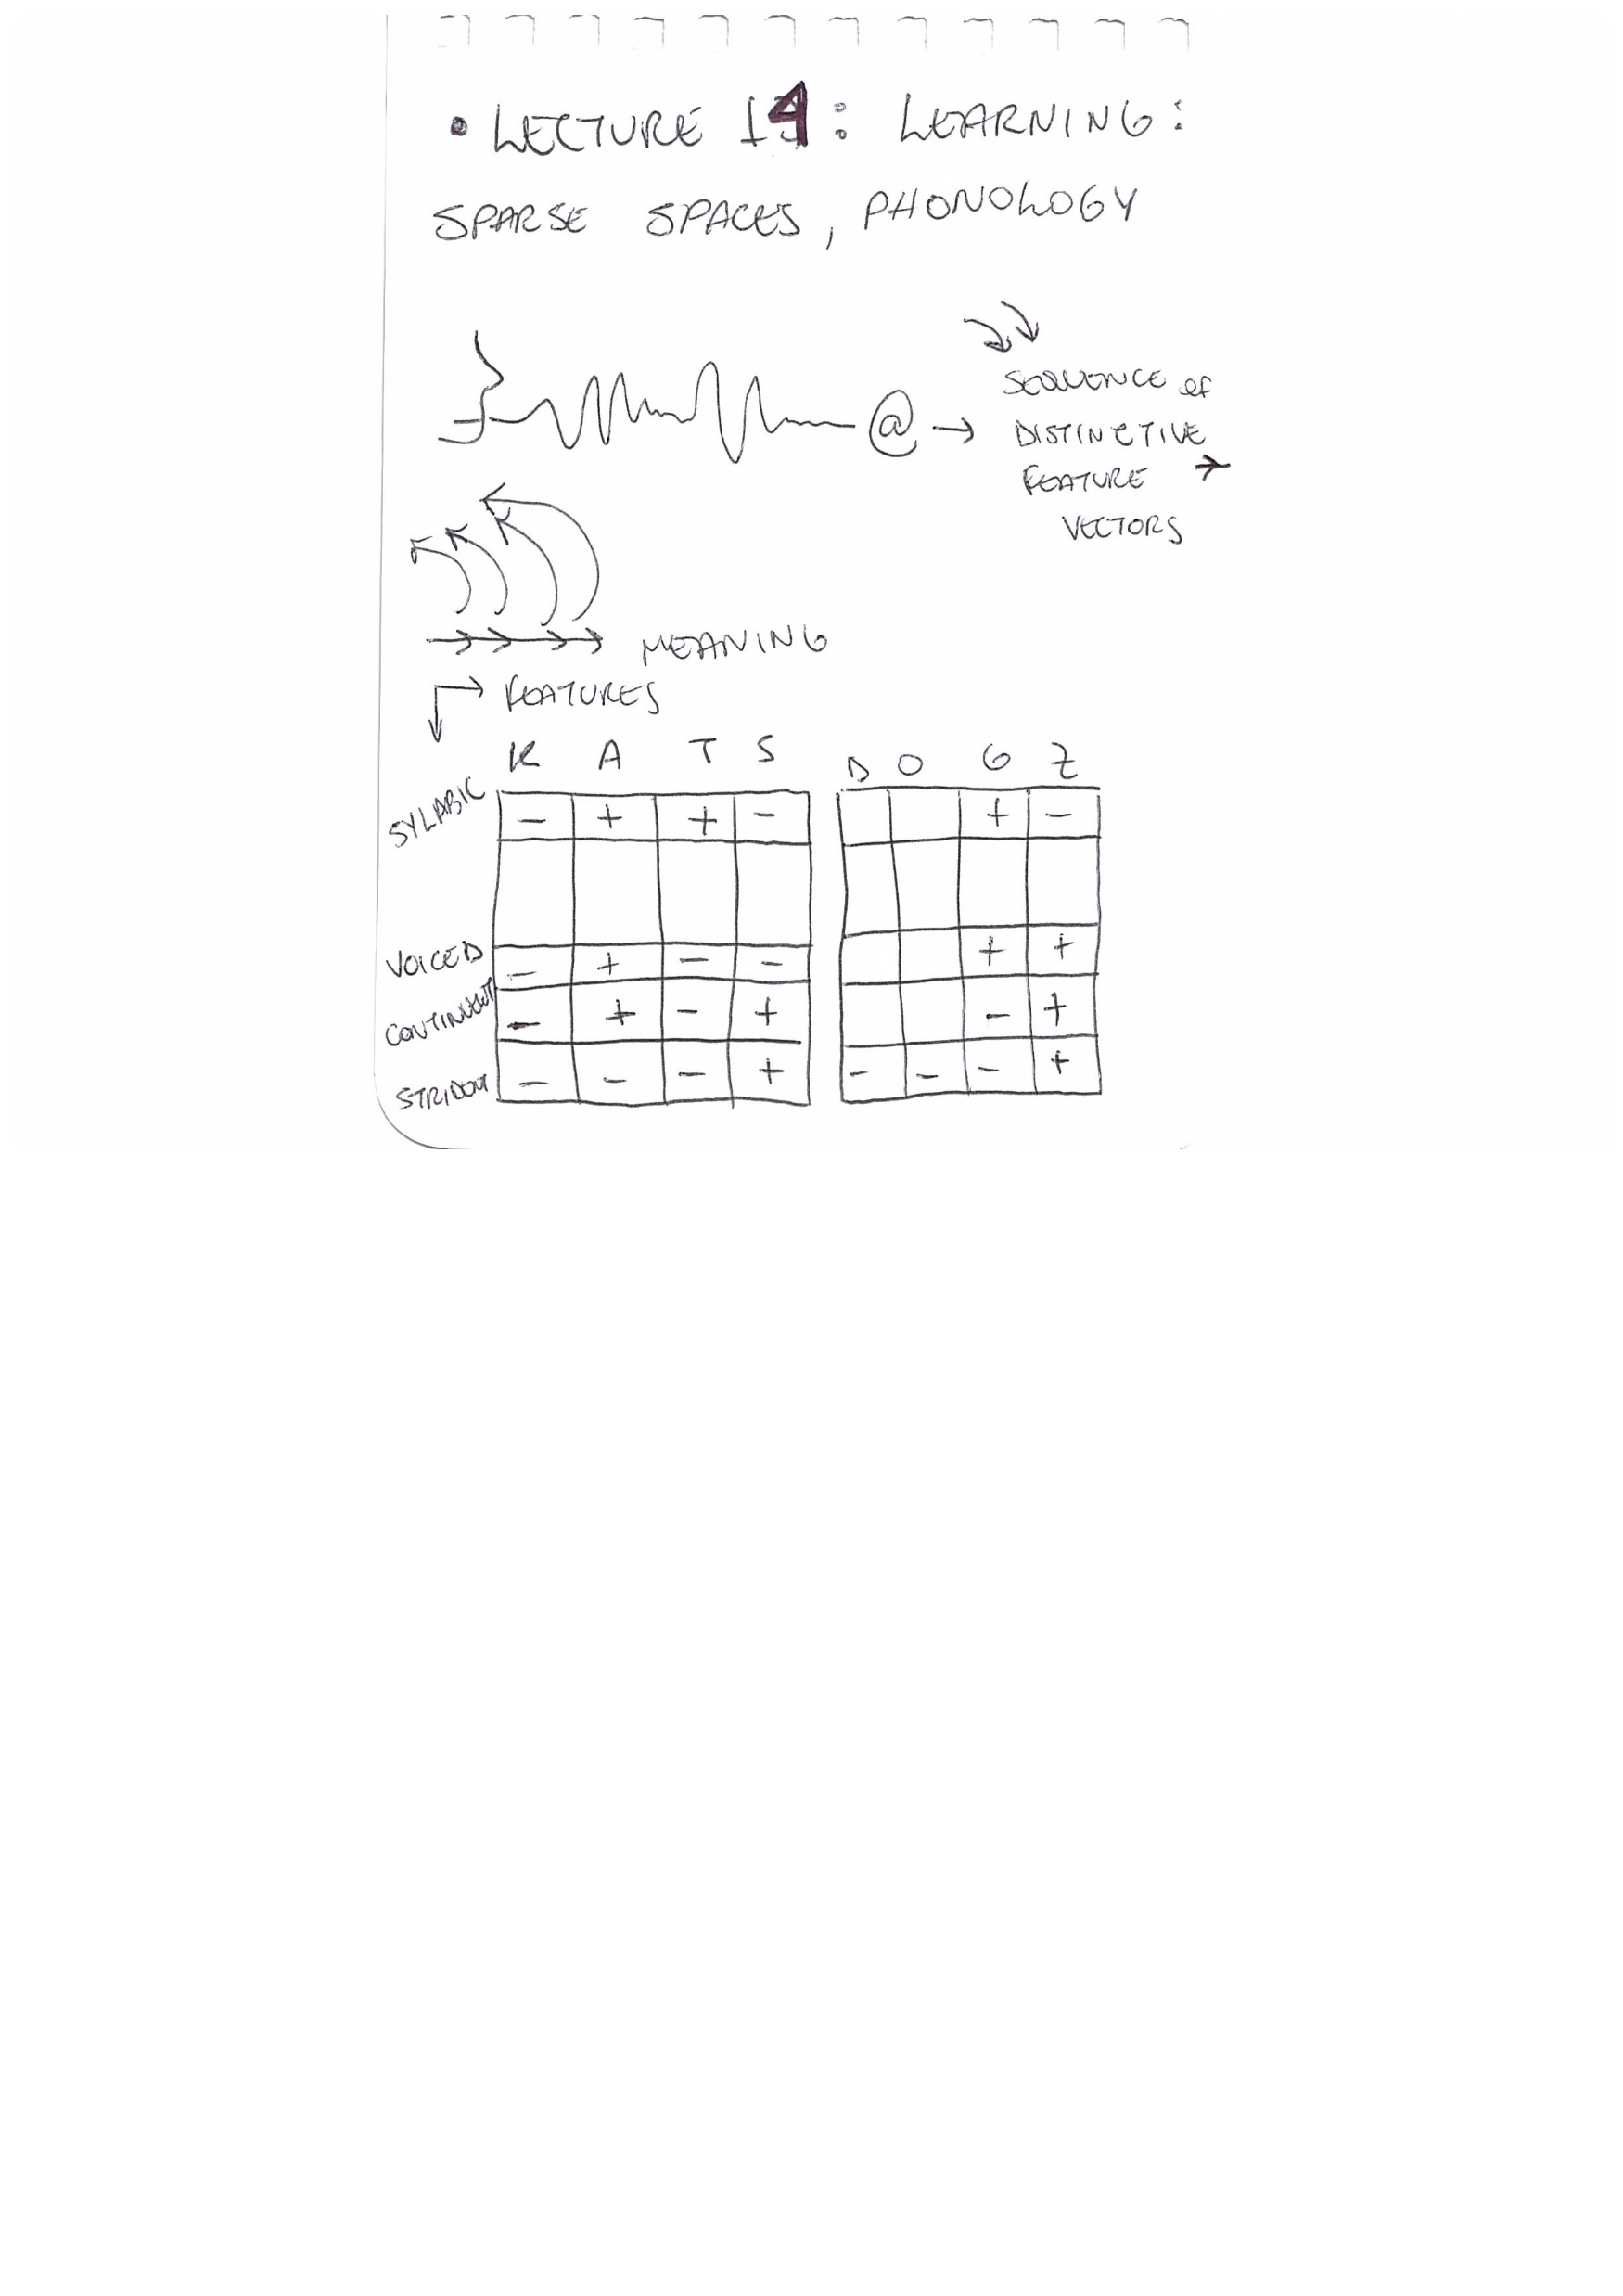 • LECTURE 14: LEARNING:
SPARSE SPACES, PHONOLOGY
SEQUENCE of
DISTINCTIVE
FEATURE →
VECTORS
MEANING
FEATURES
K A T S D O G Z
SYLABIC - + + - + -
VOICED - + - - + +
CONTINUENT - + - + - +
STRIDENT - - - + - - - +